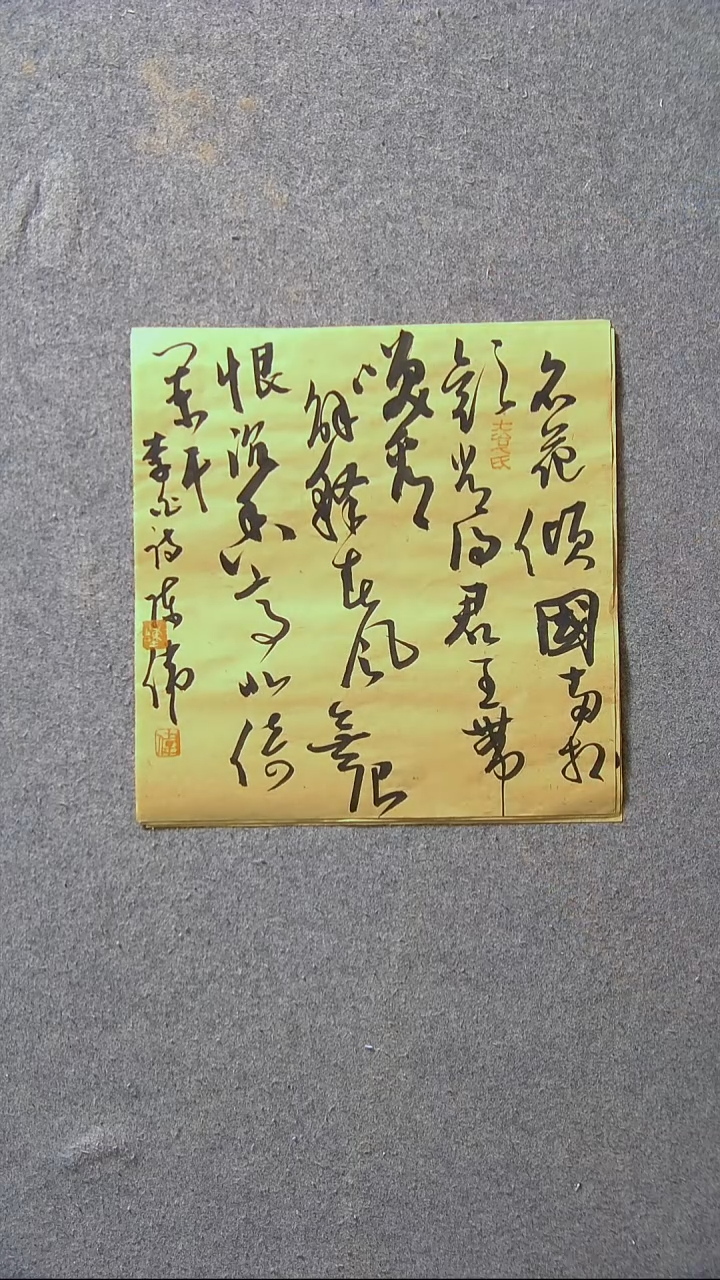 名花傾國兩相
歡常得君王帶
笑看
解釋春風無限
恨沉香亭北倚
闌干
李白詩陳偉
偉